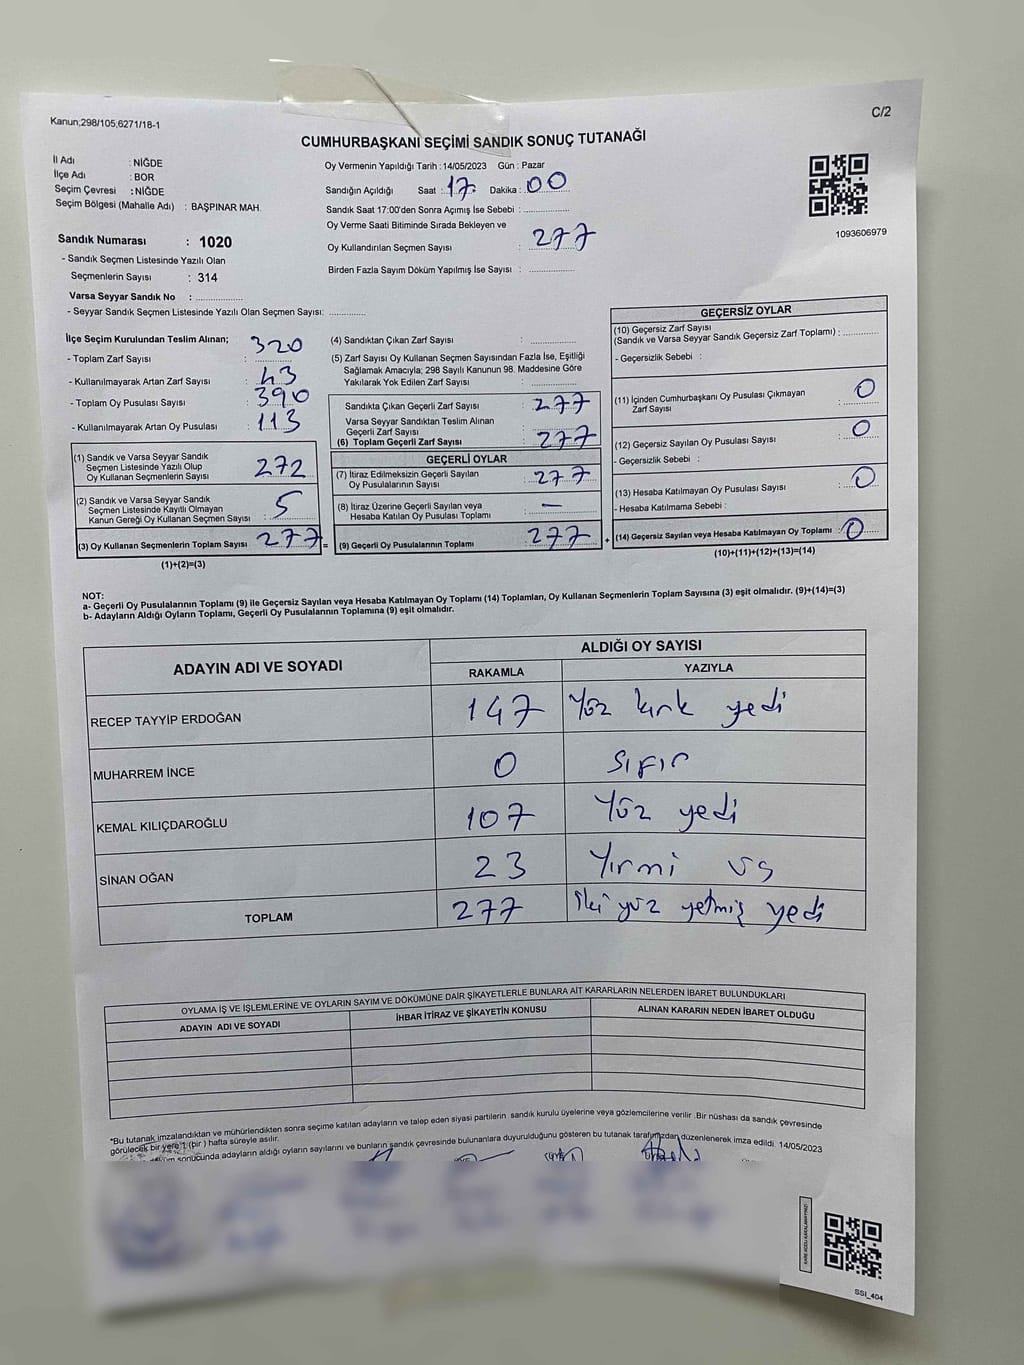 Kanun;298/105;6271/18-1
C/2
CUMHURBAŞKANI SEÇİMİ SANDIK SONUÇ TUTANAĞI
İl Adı : NİĞDE
İlçe Adı : BOR
Seçim Çevresi : NİĞDE
Seçim Bölgesi (Mahalle Adı) : BAŞPINAR MAH.
Oy Vermenin Yapıldığı Tarih :14/05/2023 Gün : Pazar
Sandığın Açıldığı Saat : 17 Dakika : 00
Sandık Saat 17:00'den Sonra Açımış İse Sebebi :
Oy Verme Saati Bitiminde Sırada Bekleyen ve
Oy Kullandırılan Seçmen Sayısı : 277
Birden Fazla Sayım Döküm Yapılmış İse Sayısı :
1093606979
Sandık Numarası : 1020
- Sandık Seçmen Listesinde Yazılı Olan
Seçmenlerin Sayısı : 314
Varsa Seyyar Sandık No :
- Seyyar Sandık Seçmen Listesinde Yazılı Olan Seçmen Sayısı:
İlçe Seçim Kurulundan Teslim Alınan;
- Toplam Zarf Sayısı : 320
- Kullanılmayarak Artan Zarf Sayısı : 43
- Toplam Oy Pusulası Sayısı : 390
- Kullanılmayarak Artan Oy Pusulası : 113
(1) Sandık ve Varsa Seyyar Sandık
Seçmen Listesinde Yazılı Olup
Oy Kullanan Seçmenlerin Sayısı : 272
(2) Sandık ve Varsa Seyyar Sandık
Seçmen Listesinde Kayıtlı Olmayan
Kanun Gereği Oy Kullanan Seçmen Sayısı : 5
(3) Oy Kullanan Seçmenlerin Toplam Sayısı : 277 =
(1)+(2)=(3)
(4) Sandıktan Çıkan Zarf Sayısı :
(5) Zarf Sayısı Oy Kullanan Seçmen Sayısından Fazla İse, Eşitliği
Sağlamak Amacıyla; 298 Sayılı Kanunun 98. Maddesine Göre
Yakılarak Yok Edilen Zarf Sayısı :
Sandıkta Çıkan Geçerli Zarf Sayısı : 277
Varsa Seyyar Sandıktan Teslim Alınan
Geçerli Zarf Sayısı :
(6) Toplam Geçerli Zarf Sayısı : 277
GEÇERLİ OYLAR
(7) İtiraz Edilmeksizin Geçerli Sayılan
Oy Pusulalarının Sayısı : 277
(8) İtiraz Üzerine Geçerli Sayılan veya
Hesaba Katılan Oy Pusulası Toplamı : —
(9) Geçerli Oy Pusulalarının Toplamı : 277 +
GEÇERSİZ OYLAR
(10) Geçersiz Zarf Sayısı
(Sandık ve Varsa Seyyar Sandık Geçersiz Zarf Toplamı) :
- Geçersizlik Sebebi :
(11) İçinden Cumhurbaşkanı Oy Pusulası Çıkmayan
Zarf Sayısı : 0
(12) Geçersiz Sayılan Oy Pusulası Sayısı : 0
- Geçersizlik Sebebi :
(13) Hesaba Katılmayan Oy Pusulası Sayısı : 0
- Hesaba Katılmama Sebebi :
(14) Geçersiz Sayılan veya Hesaba Katılmayan Oy Toplamı : 0
(10)+(11)+(12)+(13)=(14)
NOT:
a- Geçerli Oy Pusulalarının Toplamı (9) ile Geçersiz Sayılan veya Hesaba Katılmayan Oy Toplamı (14) Toplamları, Oy Kullanan Seçmenlerin Toplam Sayısına (3) eşit olmalıdır. (9)+(14)=(3)
b- Adayların Aldığı Oyların Toplamı, Geçerli Oy Pusulalarının Toplamına (9) eşit olmalıdır.
ADAYIN ADI VE SOYADI
ALDIĞI OY SAYISI
RAKAMLA YAZIYLA
RECEP TAYYİP ERDOĞAN 147 Yüz kırk yedi
MUHARREM İNCE 0 Sıfır
KEMAL KILIÇDAROĞLU 107 Yüz yedi
SİNAN OĞAN 23 Yirmi üç
TOPLAM 277 İki yüz yetmiş yedi
OYLAMA İŞ VE İŞLEMLERİNE VE OYLARIN SAYIM VE DÖKÜMÜNE DAİR ŞİKAYETLERLE BUNLARA AİT KARARLARIN NELERDEN İBARET BULUNDUKLARI
ADAYIN ADI VE SOYADI İHBAR İTİRAZ VE ŞİKAYETİN KONUSU ALINAN KARARIN NEDEN İBARET OLDUĞU
*Bu tutanak imzalandıktan ve mühürlendikten sonra seçime katılan adayların ve talep eden siyasi partilerin sandık kurulu üyelerine veya gözlemcilerine verilir .Bir nüshası da sandık çevresinde
görülecek bir yere 1 (bir ) hafta süreyle asılır.
sonucunda adayların aldığı oyların sayılarını ve bunların sandık çevresinde bulunanlara duyurulduğunu gösteren bu tutanak tarafımızdan düzenlenerek imza edildi. 14/05/2023
SSI_404